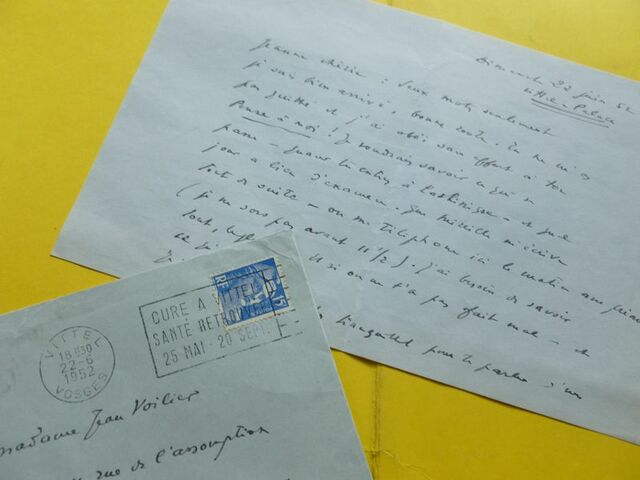 Dimanche 22 juin 52
Vittel-Palace
Jeanne chérie : deux mots seulement
je suis bien arrivé, bonne route. Tu ne m'as
pas quitté et j'ai obéi sans effort à ton
Pense à moi ! Je voudrais savoir ce qui se
passe – quand tu entres à – et quel
jour a lieu l'examen. Que m'écrive
tout de suite – ou me téléphone ici le matin
(je ne sors pas avant 11h 1/2). J'ai besoin de savoir
tout,
ce si on ne t'a pas fait mal – et
tranquille pour te parler d'un
CURE A VITTEL
SANTÉ RETROUVÉE
25 MAI - 20 SEPT.
RF
15
VITTEL
18H30
22-6
1952
VOSGES
Madame Jean Voilier
rue de l'assomption